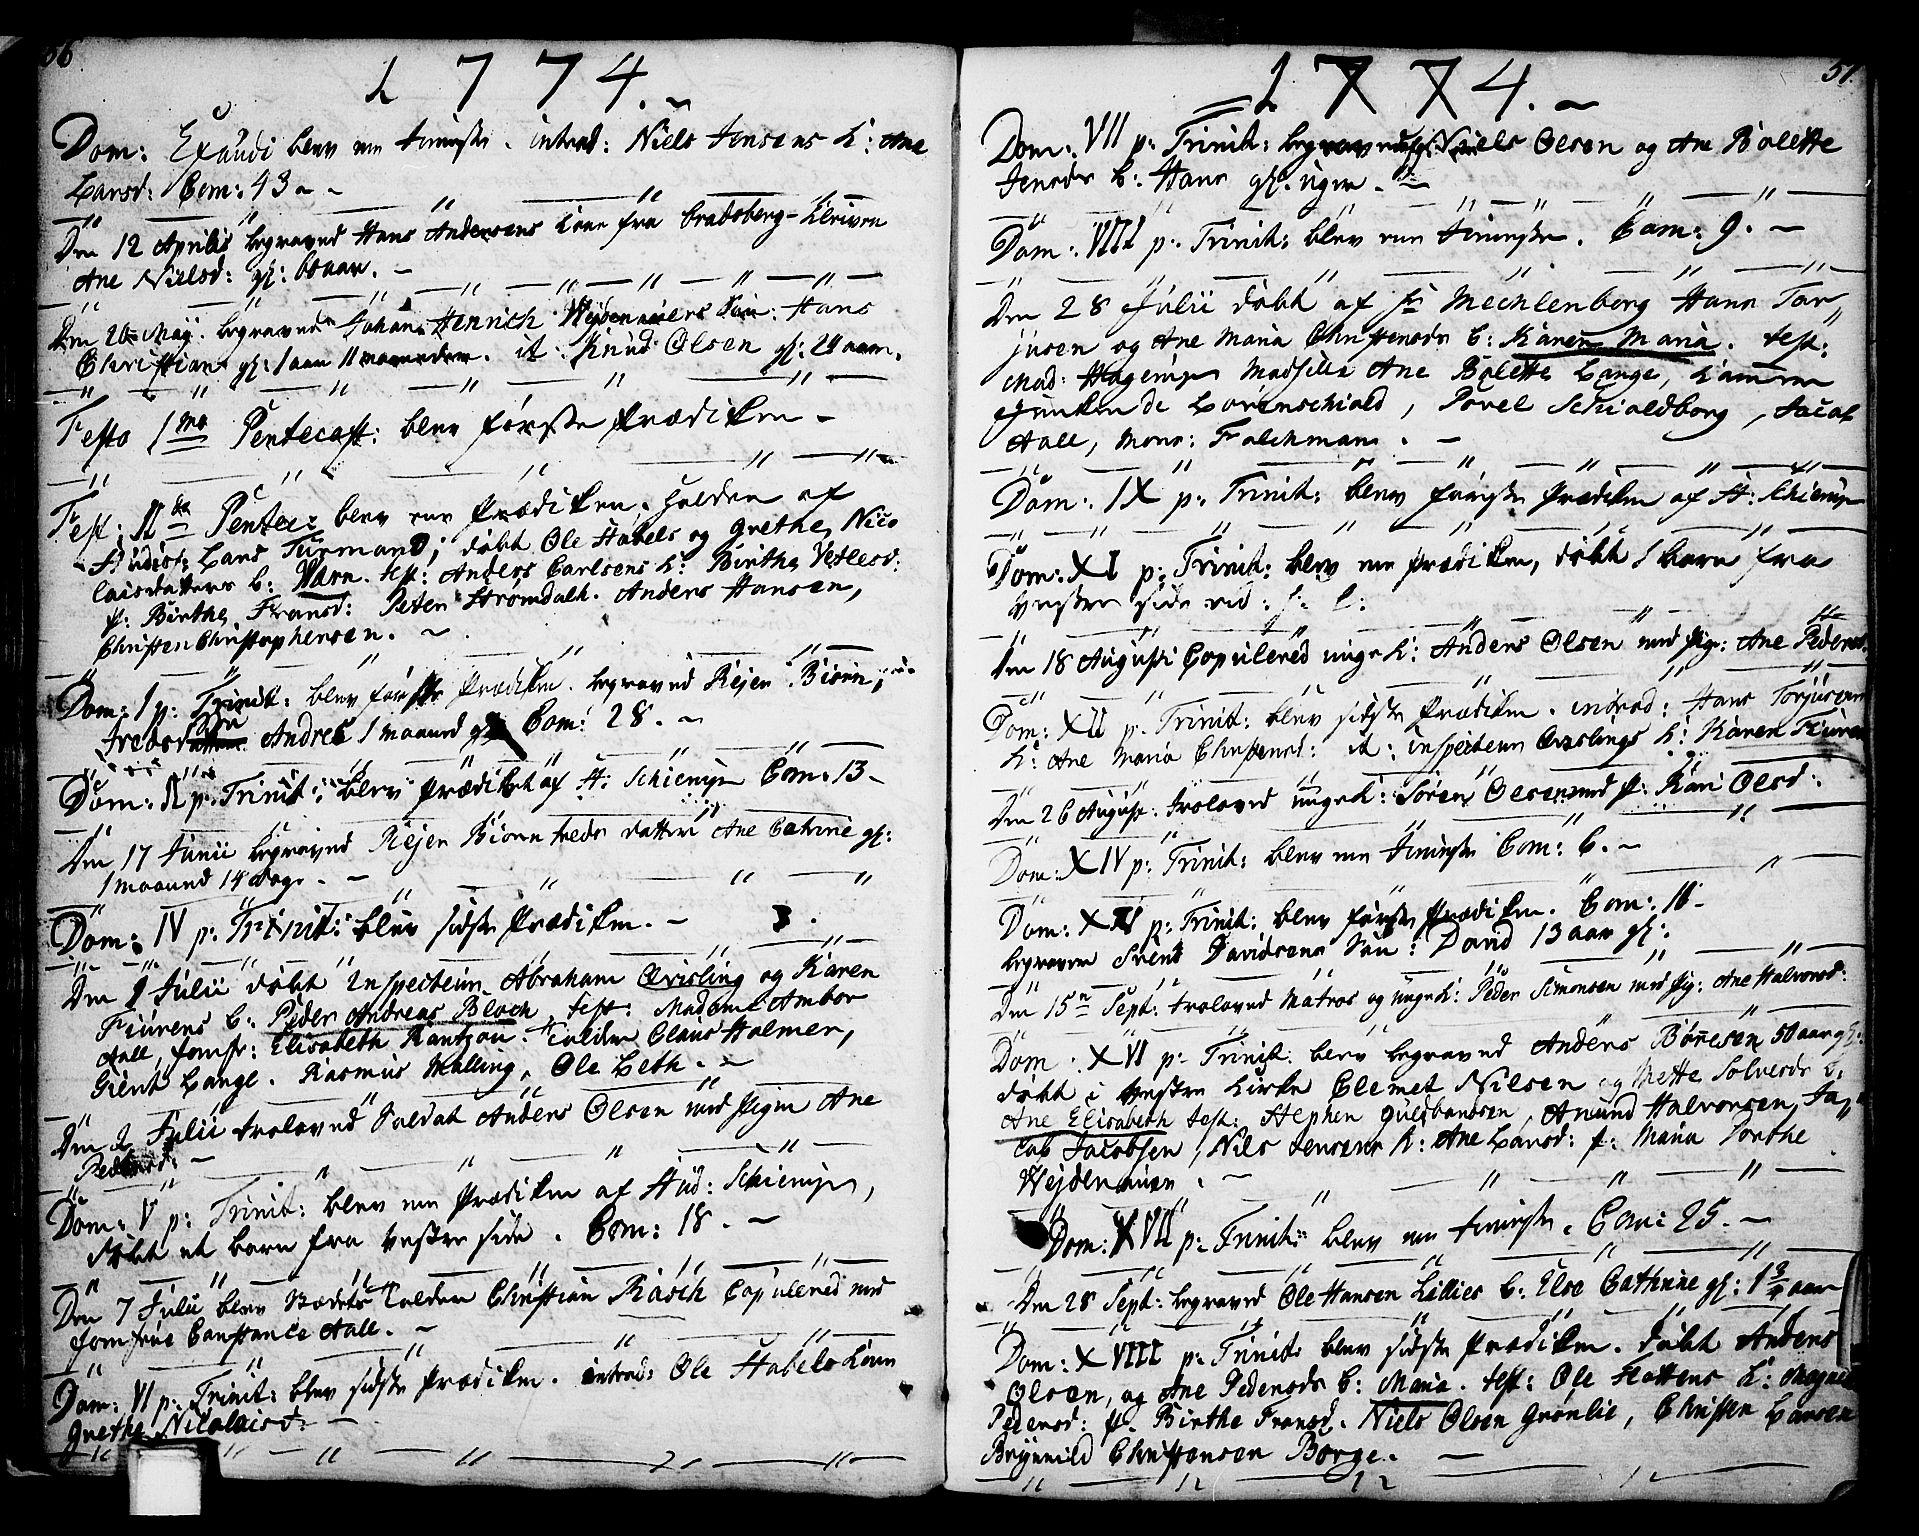 56
1774.
Dom: Exaudi blev een tieniste. introd: Niels Jensens K: Ane
Larsd: Com: 43.
Den 12 Aprilis begraved Hans Andersens kone fra Bradsberg-Kleiven
Ane Nielsd: gl: aar.
Den 20 Maij. begraved Johan Henrich Weidemeiers Søn: Hans
Christian gl: 1 aar 11 maaneder. it: Knud Olsen gl: 24 aar.
Festo 1mo Pentecost: blev første Prædiken
Fest: II da Pentec: blev een Prædiken, holden af
Studios: Lars Tuxmand; døbt Ole Habels og Grethe Nico
laisdatters b: Maren. test: Anders Carlsens K: Birthe Vetlesd:
p: Birthe Fransd: Peter Stromdalk. Anders Hansen,
Christen Christophersen.
Dom: 1 p: Trinit: blev første Prædiken. begraved Rejer Biørn
freds Søn Andreas 1 maaned gl Com: 28.
Dom: II p: Trinit: blev Prædiket af H: Schierup Com: 13
Den 17 Junii begraved Rejer Biørnfreds datter Ane Catrine gl:
1 maaned 14 dage.
Dom: IV p: Trinit: blev sidste Prædiken. 3.
Den 1 Julii døbt Inspecteur Abraham Qvisling og Karen
Fiurens b: Peder Andreas Bloch, test: Madame Ambor
Aall, jomfr: Elisabeth Rantzou. Tolder Claus Holmer,
Gierit Lange. Rasmus Malling, Ole Beth.
Den 2 Julii trolovet Soldat Anders Olsen med Pigen Ane
Pedersd:
Dom: V p: Trinit: blev een Prædiken af Stud: Schierup,
døbt et barn fra Vestre side. Com: 18.
Den 7 Julii blev Stædets Tolder Christian Rasch Copulered med
Jomfrue Constance Aall.
Dom: VI p: Trinit: blev sidste Prædiken. introd: Ole Habels kone
Grethe Nicolaisd:
57.
1774.
Dom: VII p: Trinit: begraved Niels Olsen og Ane Bolette
Jensdr b: Hans gl. uger.
Dom: VIII p: Trinit: blev een tieniste. Com: 9.
Den 28 Julii døbt af Hr Mechlenborg Hans Tor
jusen og Ane Maria Christensdr b: Karen Maria. test:
Mad: Hagerup Madselle Ane Bolette Lange, Kammer
junker de Lövenschiold, Povel Schioldborg, Jacob
Aall, Mons: Falchman.
Dom: IX p: Trinit: blev første Prædiken af H: Schierup
Dom: XI p: Trinit: blev een Prædiken, døbt 1 barn fra
Vestre side vid: l. C:
Den 18 Augusti Copulered unge k: Anders Olsen med Pig: Ane Pedersd.
Dom: XII p: Trinit: blev sidste Prædiken. introd: Hans Torjusens
K: Ane Maria Christensd: it: inspecteur Qvislings K: Karen Fiuren
Den 26 August: trolovet unge k: Søren Olsen med p: Kari Olsd:
Dom: XIV p: Trinit: blev een tieniste Com: 6.
Dom: XV p: Trinit: blev første Prædiken. Com: 16
begraven Svend Davidsens Søn: David 13 aar gl:
Den 15n Sept: trolovet Matros og unge k: Peder Simonsen med Pig: Ane Halvorsd:
Dom. XVI p: Trinit: blev begraved Anders Börresen 50 aar gl:
døbt i Vestre kirke Clemet Nilsen og Mette Solvesdr b:
Ane Elisabeth test: Stephen Guldbandsen, Amund Halvorsen, Ja
cob Jacobsen, Nils Jensens K: Ane Larsd: p: Maria Dorthe
Wejdemeier.
Dom: XVII p: Trinit: blev een tieniste. Com: 25.
Den 28 Sept: begraved Ole Hansen Lillies b: Else Cathrine gl: 1 3/4 aar
Dom: XVIII p: Trinit: blev sidste Prædiken. døbt Anders
Olsen, og Ane Pedersdr b: Maria. test: Ole Hattens K:
Pedersd: p: Birthe Fransd. Niels Olsen Grönlie, Christen Larsen
Brynnild Christensen Borge.